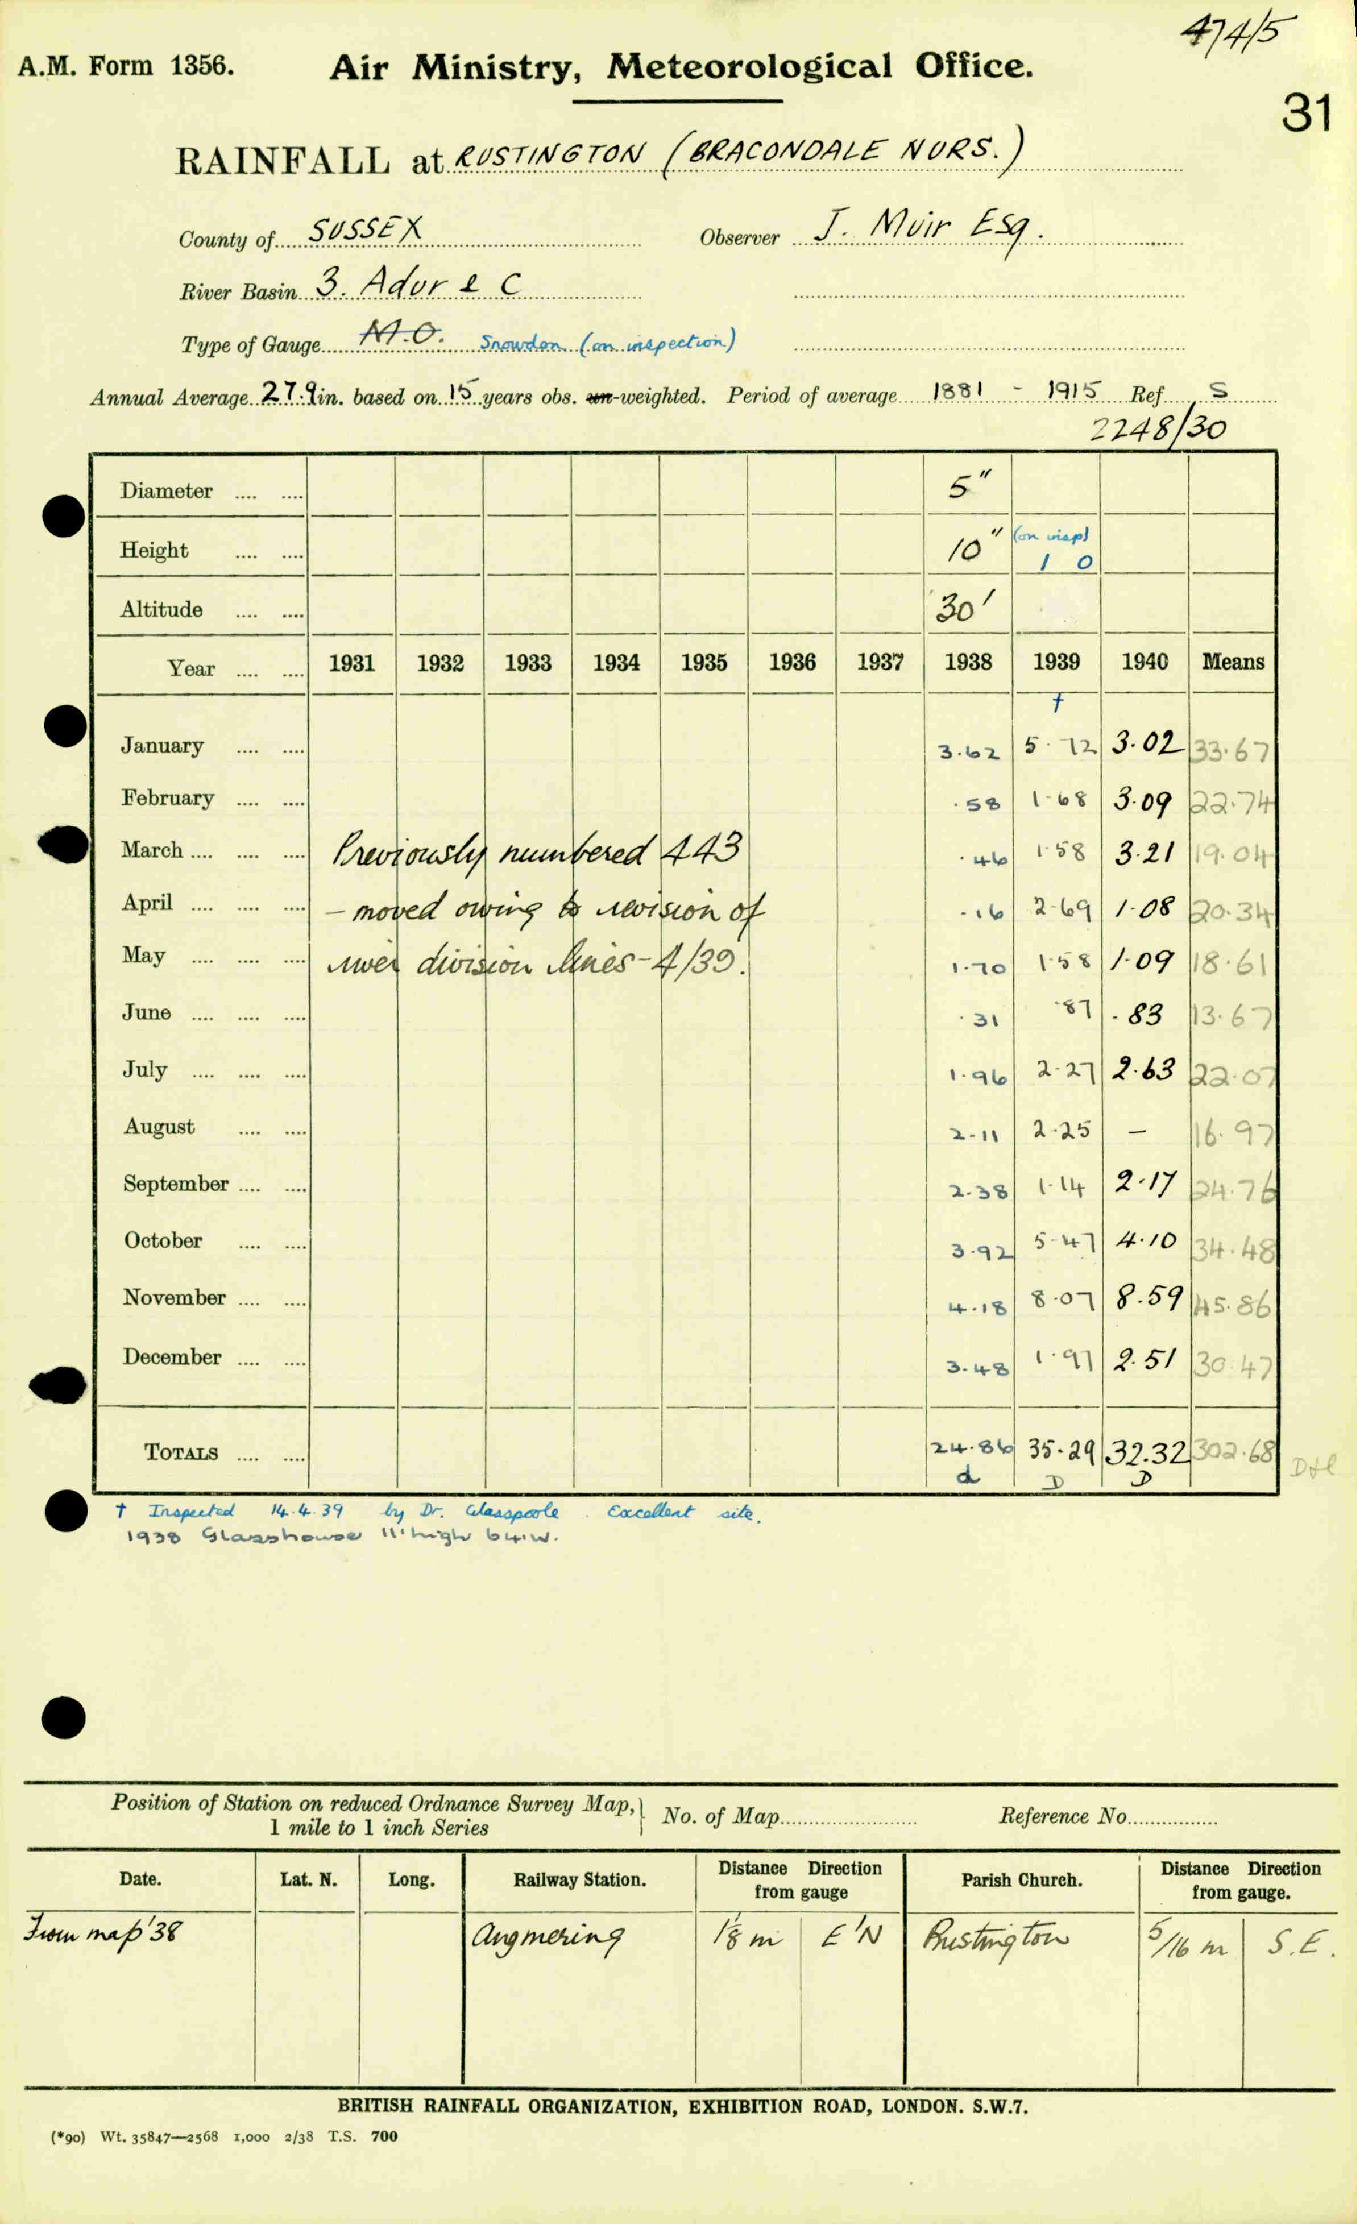 474/5
A.M. Form 1356. Air Ministry, Meteorological Office.
31
RAINFALL at RUSTINGTON (BRACONDALE NURS.)
County of SUSSEX Observer J. Muir Esq.
River Basin 3. Adur & C
Type of Gauge M.O. Snowdon (on inspection)
Annual Average 27.9 in. based on 15 years obs. un-weighted. Period of average 1881 - 1915 Ref. S
2248/30
Diameter .... .... 5"
Height .... .... 10" (on insp) 1 0
Altitude .... .... 30'
Year .... .... 1931 1932 1933 1934 1935 1936 1937 1938 1939 1940 Means
†
January .... .... 3.62 5.72 3.02 33.67
February .... .... .58 1.68 3.09 22.74
March .... .... .... Previously numbered 443 .46 1.58 3.21 19.04
April .... .... .... - moved owing to revision of .16 2.69 1.08 20.34
May .... .... .... river division lines - 4/39. 1.70 1.58 1.09 18.61
June .... .... .... .31 .87 .83 13.67
July .... .... .... 1.96 2.27 2.63 22.07
August .... .... 2.11 2.25 - 16.97
September .... .... 2.38 1.14 2.17 24.76
October .... .... 3.92 5.47 4.10 34.48
November .... .... 4.18 8.07 8.59 45.86
December .... .... 3.48 1.97 2.51 30.47
TOTALS .... .... 24.86 35.29 32.32 302.68
d D D
† Inspected 14.4.39 by Dr. Glasspoole. Excellent site.
1938 Glasshouse 11' high 64'W.
Position of Station on reduced Ordnance Survey Map, 1 mile to 1 inch Series } No. of Map Reference No.
Date. Lat. N. Long. Railway Station. Distance Direction from gauge Parish Church. Distance Direction from gauge.
From map '38 Angmering 1⅛ m E'N Rustington 5/16 m S.E.
BRITISH RAINFALL ORGANIZATION, EXHIBITION ROAD, LONDON. S.W.7.
(*90) Wt. 35847—2568 1,000 2/38 T.S. 700